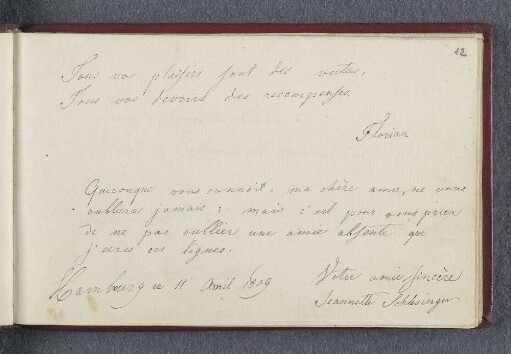 22
Tous vos plaisirs sont des vertus,
Tous vos devoirs des recompenses.
Florian
Quiconque vous connoit, ma chère amie, ne vous
oubliera jamais; mais c'est pour vous prier
de ne pas oublier une amie absente que
j'ecris ces lignes.
Hambourg ce 11 Avril 1809
Votre amie sincère
Jeannette Schlesinger